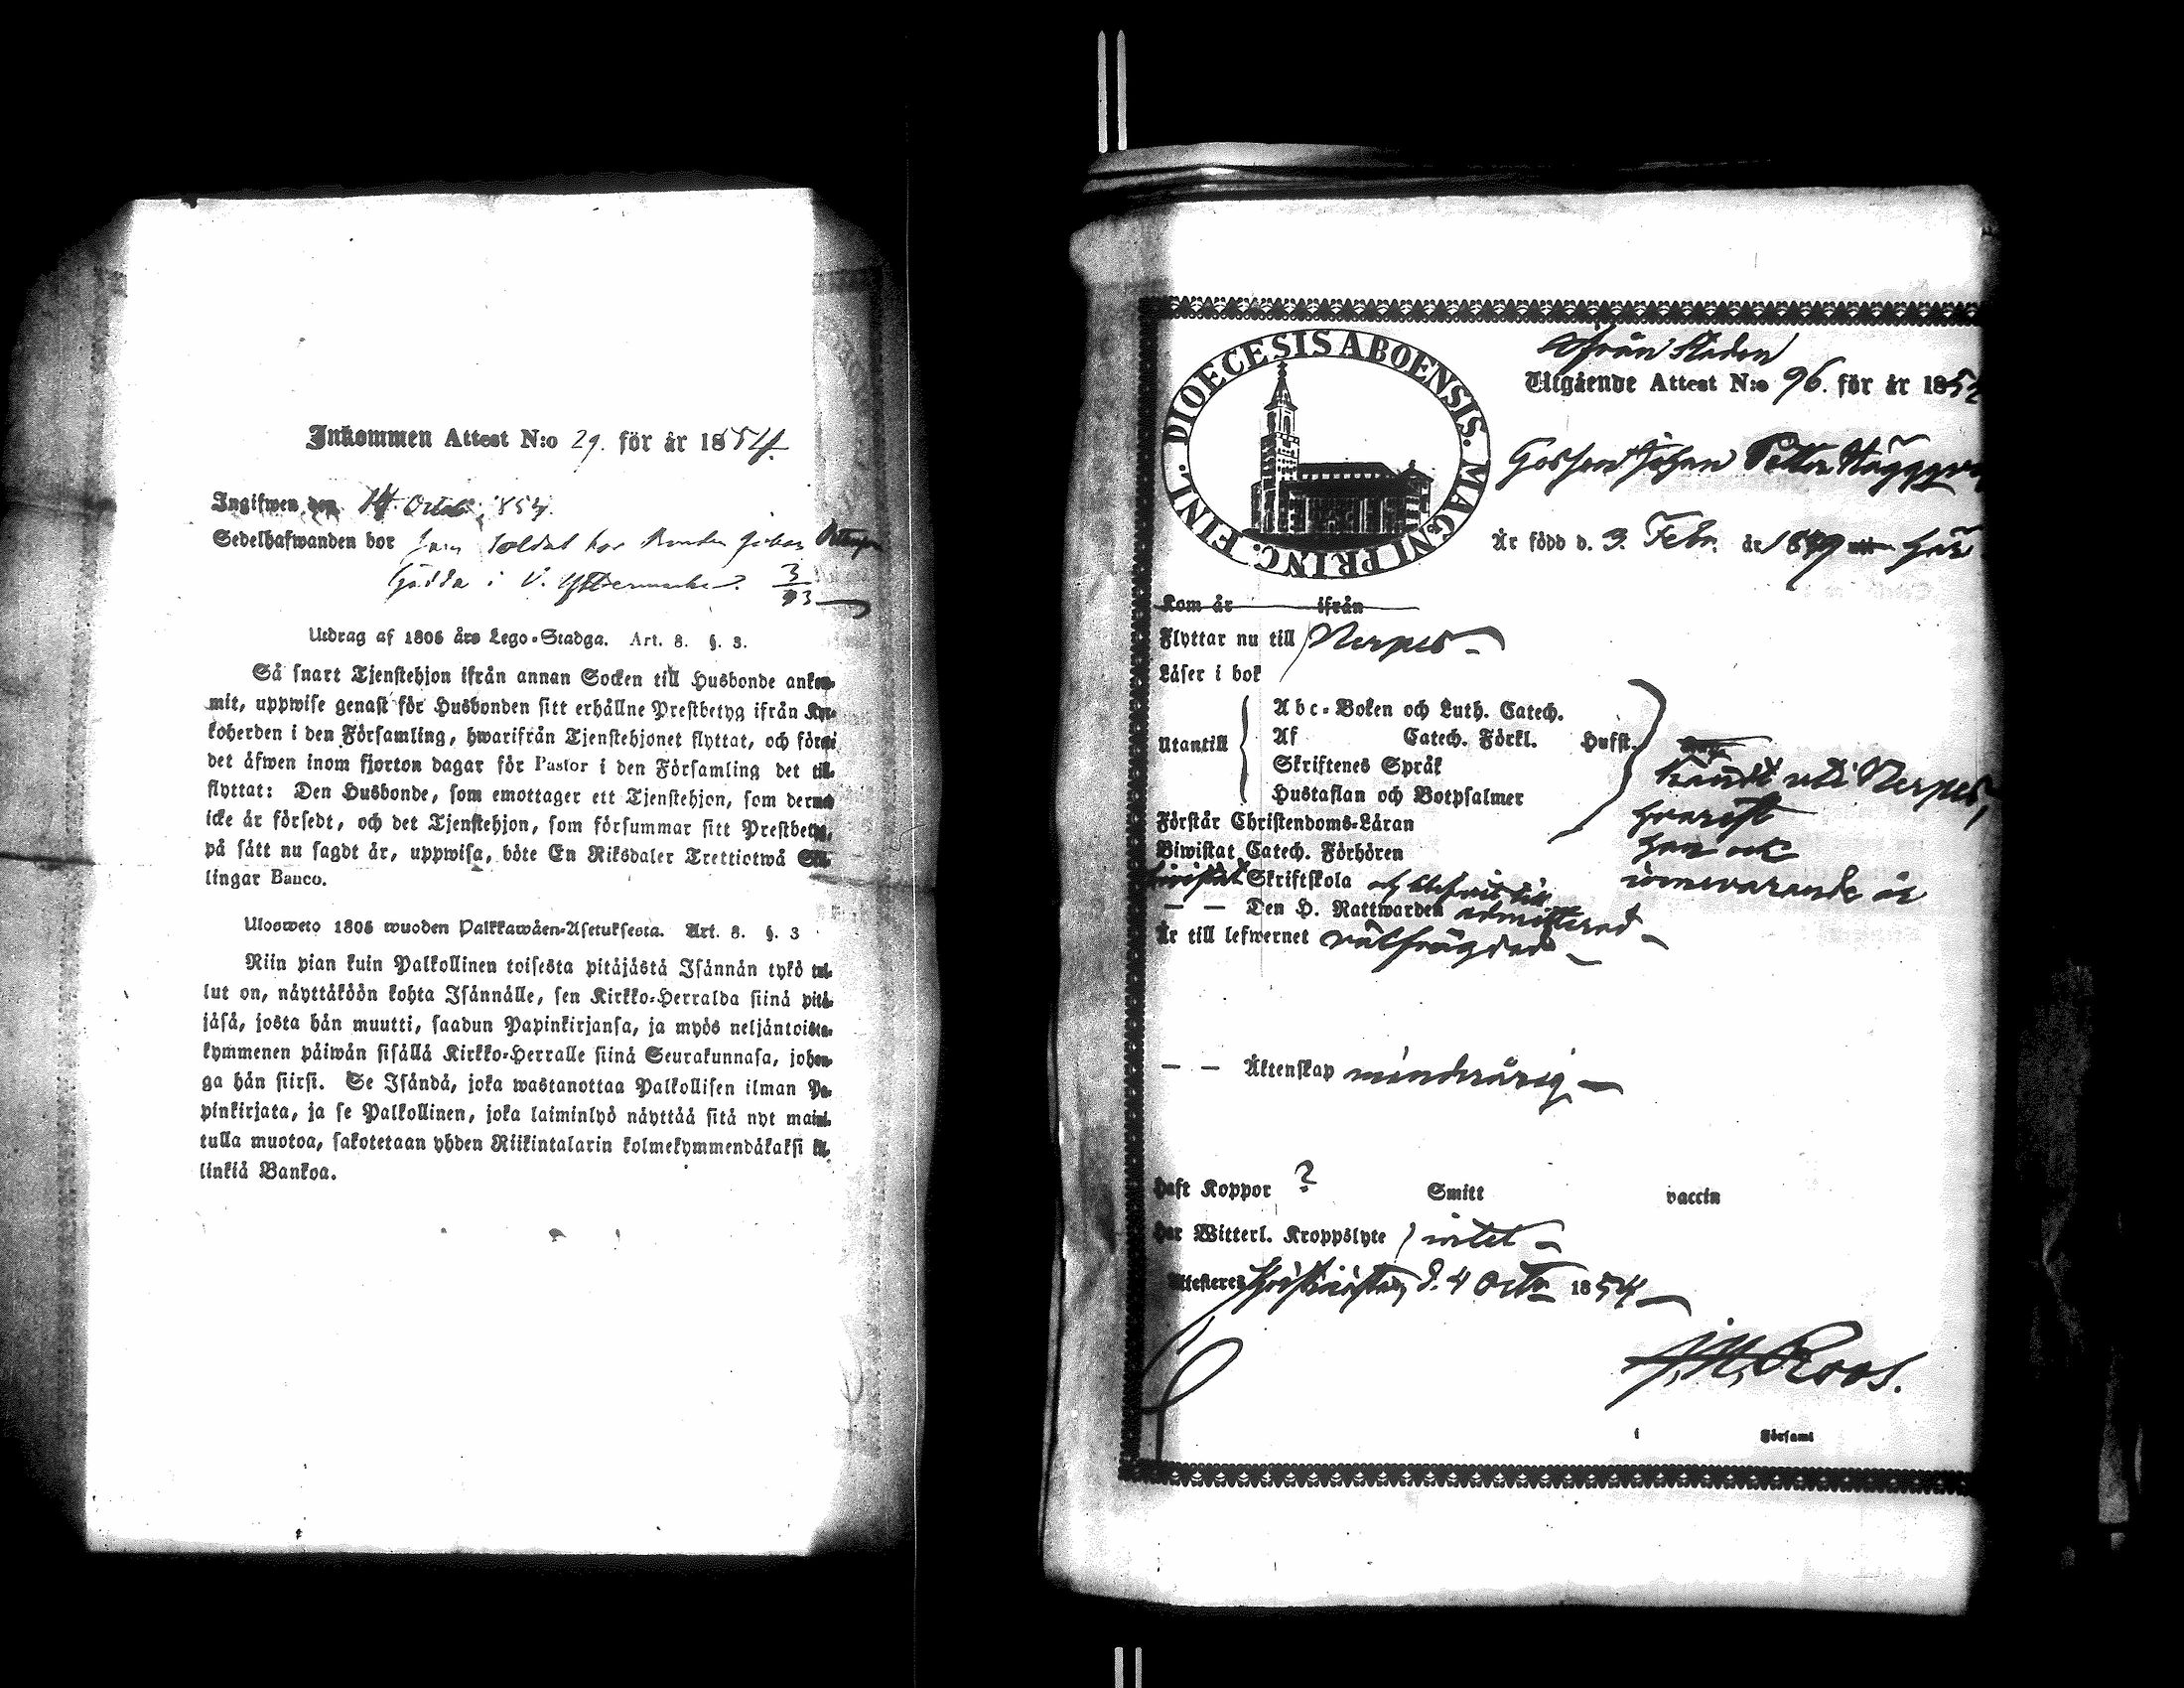 Inkommen Attest N:o 29. för år 1854.
Ingifwen den 14 Octob. 1854.
Sedelhafwanden bor som Soldat hos Bonden Johan
Gädda i V. Yttermark. 3/93
Utdrag af 1805 års Lego-Stadga. Art. 8. §. 3.
Så snart Tjenstehjon ifrån annan Socken till Husbonde ankom-
mit, uppwise genast för Husbonden sitt erhållne Prestbetyg ifrån Kyr-
koherden i den Församling, hwarifrån Tjenstehjonet flyttat, och förete
det äfwen inom fjorton dagar för Pastor i den Församling det till-
flyttat: Den Husbonde, som emottager ett Tjenstehjon, som dermed
icke är försedt, och det Tjenstehjon, som försummar sitt Prestbetyg,
på sätt nu sagdt är, uppwisa, böte En Riksdaler Trettiotwå Skil-
lingar Banco.
Ulosweto 1805 wuoden Palkkawäen-Asetuksesta. Art. 8. §. 3
Niin pian kuin Palkollinen toisesta pitäjästä Isännän tykö tul-
lut on, näyttäköön kohta Isännälle, sen Kirkko-Herralda siinä pitä-
jäsä, josta hän muutti, saadun Papinkirjansa, ja myös neljäntoista-
kymmenen päiwän sisällä Kirkko-Herralle siinä Seurakunnasa, johon-
ga hän siirsi. Se Isändä, joka wastanottaa Palkollisen ilman Pa-
pinkirjata, ja se Palkollinen, joka laiminlyö näyttää sitä nyt maini-
tulla muotoa, sakotetaan yhden Riikintalarin kolmekymmendäkaksi kil-
linkiä Bankoa.
DIOECESIS ABOENSIS. MAGNI PRINC. FINL.
ifrån Staden
Utgående Attest N:o 96. för år 1854
Gossen Johan Petter Häggqvist
Är född d. 3. Febr. år 1849 här
Kom år ifrån
Flyttar nu till Nerpes
Läser i bok
Utantill
Abc-Boken och Luth. Catech.
Af Catech. Förkl. Husst.
Skriftenes Språk
Hustaflan och Botpsalmer
kändt uti Nerpes,
hvarest
han ock
innevarande år
Förstår Christendoms-Läran
Biwistat Catech. Förhören
biwistat Skriftskola och blefwit till
— — Den H. Nattwarden admitterad
Är till lefwernet välfrägdad
— — Äktenskap minderårig
Haft Koppor ? Smitt vaccin
Har Witterl. Kroppslyte intet
Attesteres Christinestad, d. 4 Octob. 1854
J. M. Roos.
i Församl